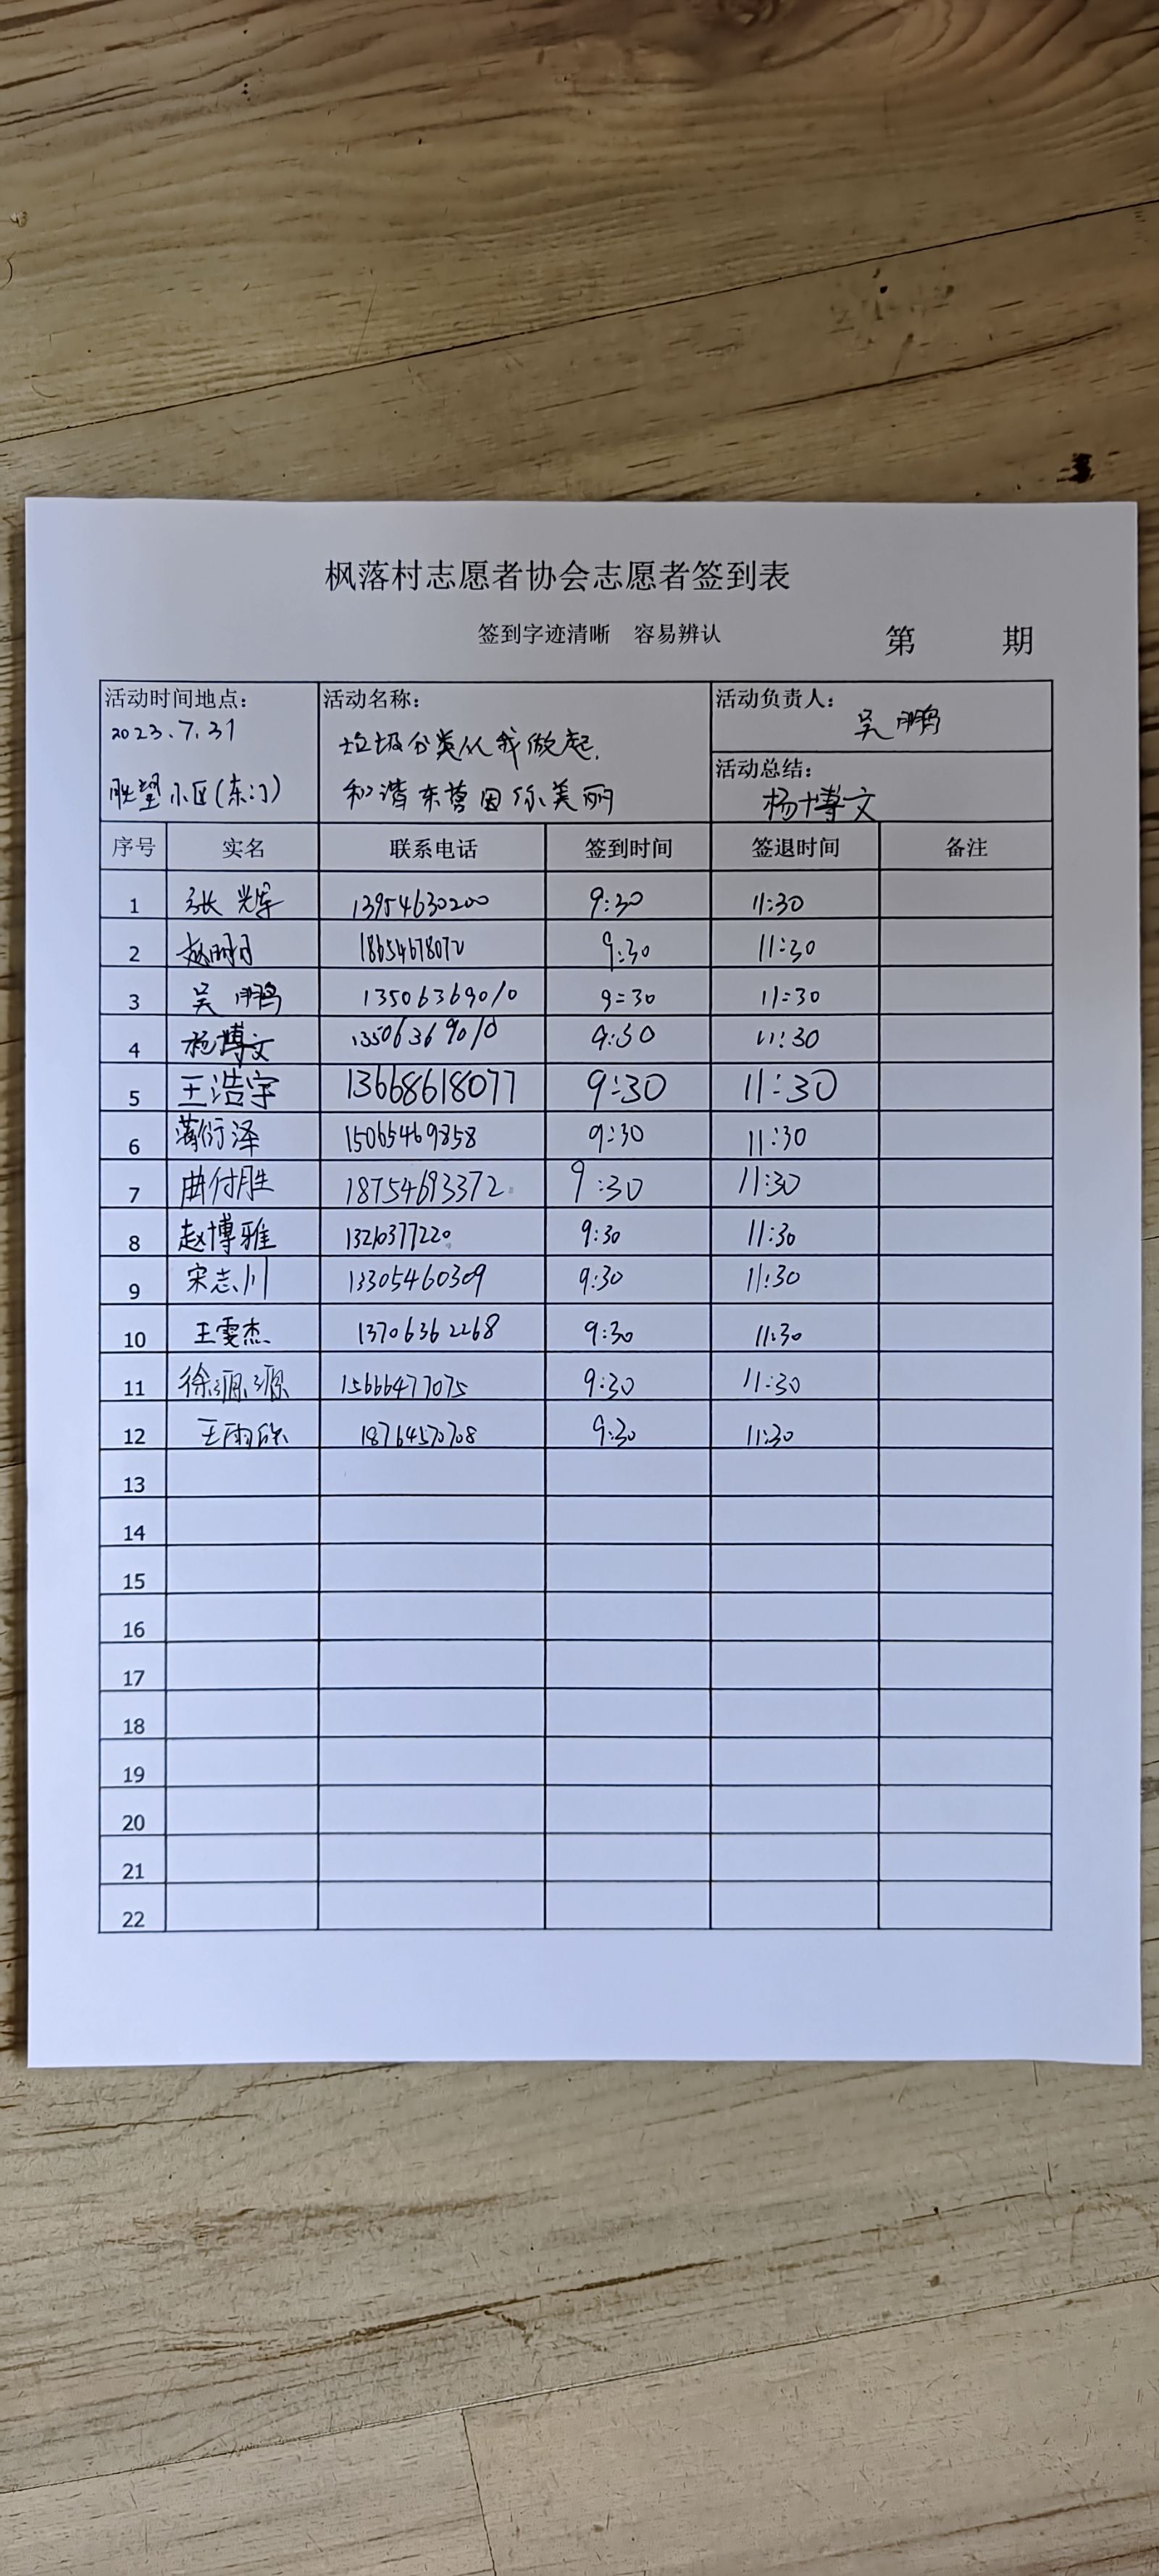 枫落村志愿者协会志愿者签到表
签到字迹清晰 容易辨认 第 期
活动时间地点： 活动名称： 活动负责人：
2023.7.31 垃圾分类从我做起. 吴鹏
胜望小区(东门) 和谐东营因你美丽 活动总结：
杨博文
序号 实名 联系电话 签到时间 签退时间 备注
1 张辉 13954630200 9:30 11:30
2 赵明月 18654678072 9:30 11:30
3 吴鹏 13506369010 9:30 11:30
4 杨博文 13506369010 9:30 11:30
5 王浩宇 13668618077 9:30 11:30
6 衍泽 15065469858 9:30 11:30
7 曲付胜 18754693372 9:30 11:30
8 赵博雅 13210377220 9:30 11:30
9 宋志川 13305460309 9:30 11:30
10 王雯杰 13706362268 9:30 11:30
11 徐源源 15666477075 9:30 11:30
12 王雨欣 9:30 11:30
13
14
15
16
17
18
19
20
21
22